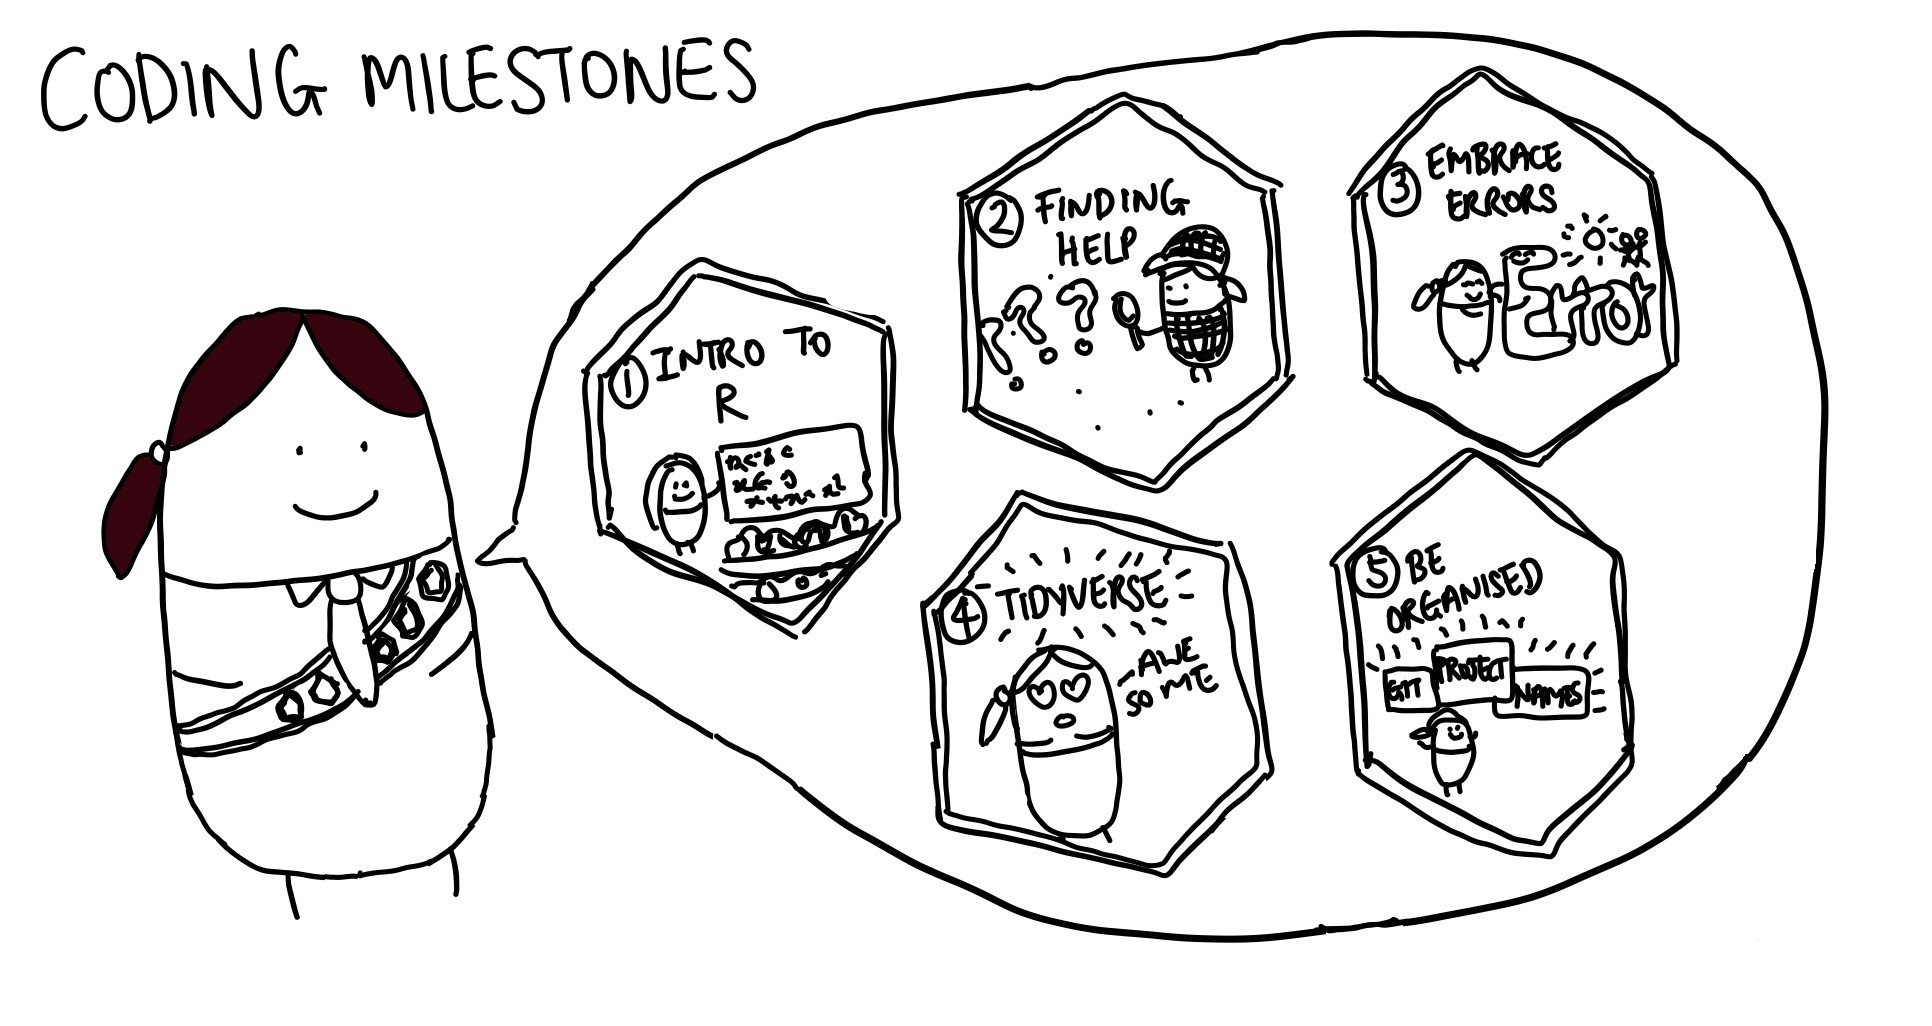 CODING MILESTONES
1 INTRO TO
R
2 FINDING
HELP
? ? ?
3 EMBRACE
ERRORS
Error
4 TIDYVERSE
AWE
SO ME
5 BE
ORGANISED
GIT PROJECT NAMES